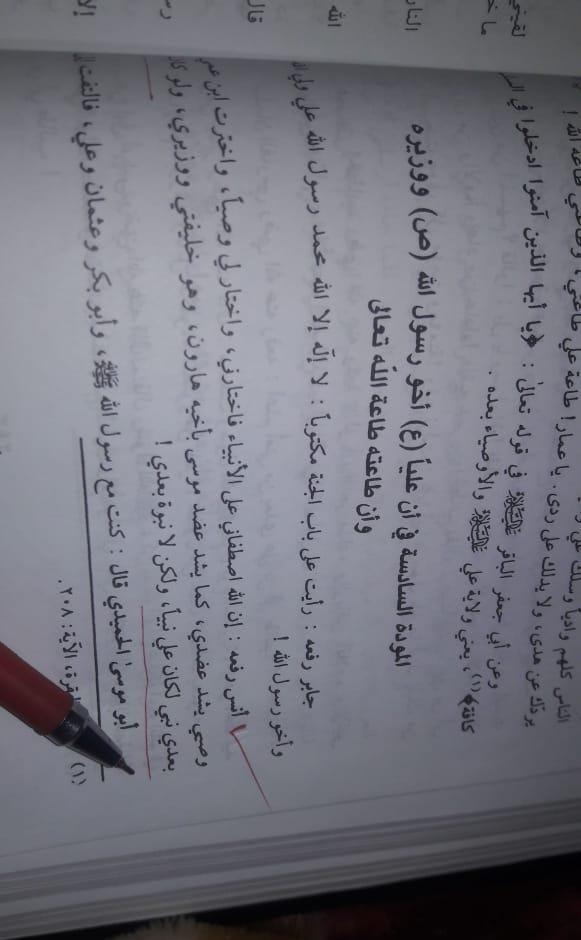 الناس كلهم وادياً وسلك علي
يردك عن هدى، ولا يدلك على ردى. يا عمار! طاعة علي طاعتي، وطاعتي طاعة الله !
وعن أبي جعفر الباقر في قوله تعالى : ﴿يا أيها الذين آمنوا ادخلوا في
كافة﴾(١)، يعني ولاية علي والأوصياء بعده .
المودة السادسة في أن علياً (ع) أخو رسول الله (ص) ووزيره
وأن طاعته طاعة الله تعالى
جابر رفعه : رأيت على باب الجنة مكتوباً : لا إله إلا الله محمد رسول الله علي ولي
وأخو رسول الله !
أنس رفعه : إن الله اصطفاني على الأنبياء فاختارني، واختار لي وصياً، واخترت ابن
وصيي يشد عضدي، كما يشد عضد موسى بأخيه هارون، وهو خليفتي ووزيري، ولو كان
بعدي نبي لكان علي نبياً، ولكن لا نبوة بعدي !
أبو موسى الحميدي قال : كنت مع رسول الله ﷺ، وأبو بكر وعثمان وعلي، فالتفت
(١) الآية: ٢٠٨.